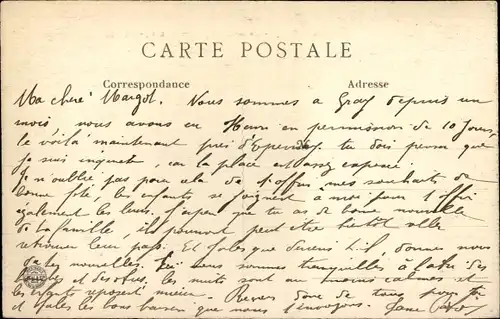 CARTE POSTALE
Correspondance
Adresse
Ma cheré Margot. Nous sommes a Gray depuis un
mois, nous avons eu Henri en permission de 10 Jours,
le voilà maintenant près d'Epernay. tu dois penser que
je suis inquiet, car la place est assez exposé.
Je n'oublie pas pour cela de t'offrir mes souhaits de
bonne fête, les enfants se joignent à moi pour t'offrir
également les leurs. J'espère que tu as de bonne nouvelle
de ta famille, ils pourront peut etre bientôt aller
retrouver leur pays. Et Jules que devient-il, donnes nous
de tes nouvelles. Ici nous sommes tranquilles à l'abri des
et des obus, les nuits sont au moins calmes et
les enfants reposent mieux. Recois donc de tous
et Jules les bons baisers que nous t'envoyons. Jane